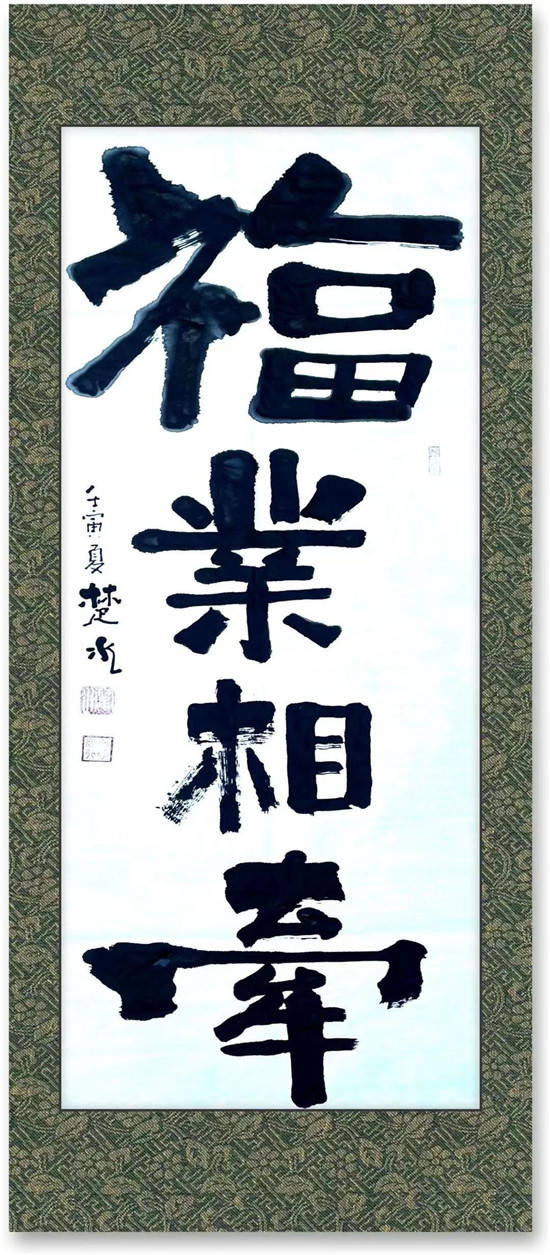 福業相牽
壬寅夏楚